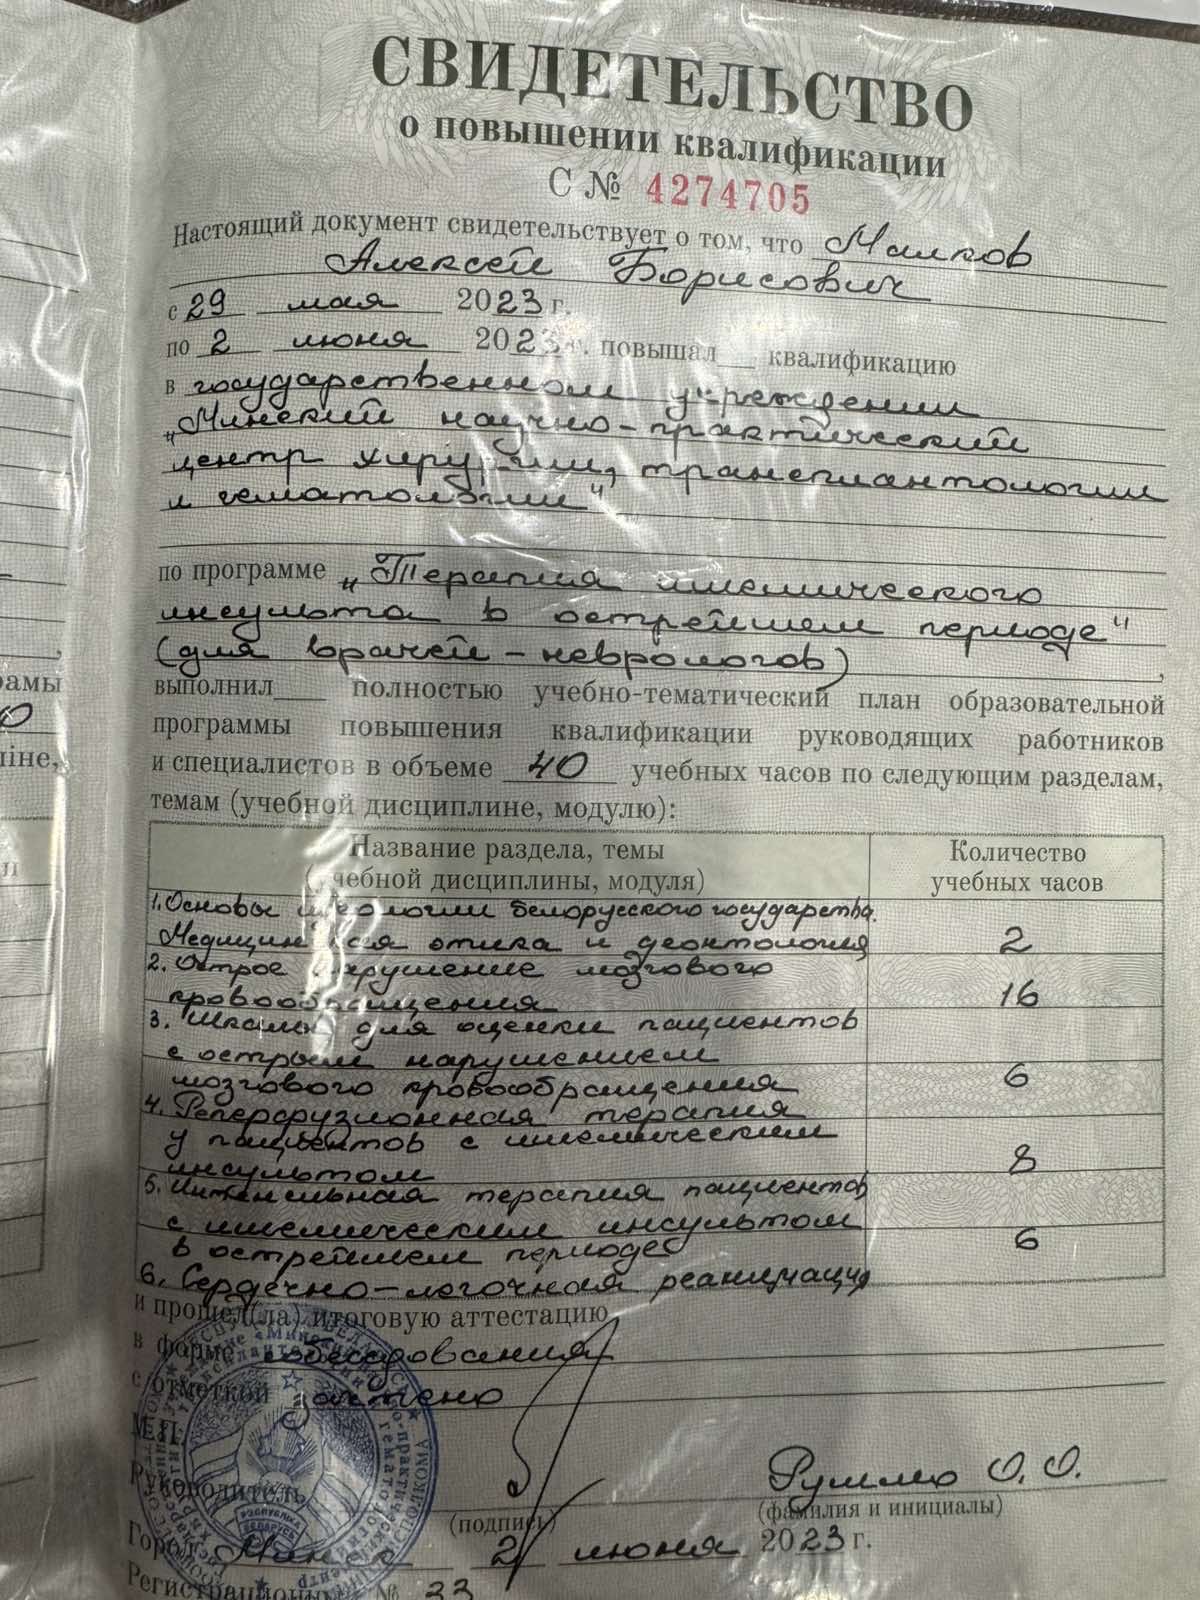 СВИДЕТЕЛЬСТВО
о повышении квалификации
С № 4274705
Настоящий документ свидетельствует о том, что Малков
Алексей Борисович
с 29 мая 2023 г.
по 2 июня 2023 г. повышал квалификацию
в государственном учреждении
„Минский научно-практический
центр хирургии, трансплантологии
и гематологии"
по программе „Терапия ишемического
инсульта в острейшем периоде"
(для врачей-неврологов),
выполнил полностью учебно-тематический план образовательной
программы повышения квалификации руководящих работников
и специалистов в объеме 40 учебных часов по следующим разделам,
темам (учебной дисциплине, модулю):
Название раздела, темы
(учебной дисциплины, модуля)
Количество
учебных часов
1. Основы идеологии белорусского государства.
Медицинская этика и деонтология 2
2. Острое нарушение мозгового
кровообращения 16
3. Шкалы для оценки пациентов
с острым нарушением
мозгового кровообращения 6
4. Реперфузионная терапия
у пациентов с ишемическим
инсультом 8
5. Интенсивная терапия пациентов
с ишемическим инсультом
в острейшем периоде 6
6. Сердечно-легочная реанимация
и прошел(ла) итоговую аттестацию
в форме собеседования
с отметкой зачтено
М.П.
Руководитель
(подпись)
Руммо О.О.
(фамилия и инициалы)
Город Минск 2 июня 2023 г.
Регистрационный № 33
рамы
0
ліне,
РЭСПУБЛІКА
БЕЛАРУСЬ